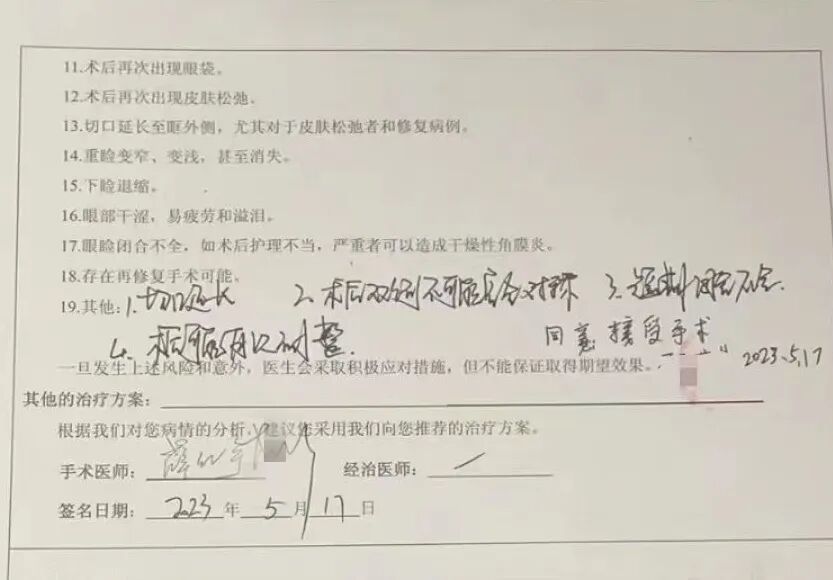 11.术后再次出现眼袋。
12.术后再次出现皮肤松弛。
13.切口延长至眶外侧，尤其对于皮肤松弛者和修复病例。
14.重睑变窄、变浅，甚至消失。
15.下睑退缩。
16.眼部干涩，易疲劳和溢泪。
17.眼睑闭合不全，如术后护理不当，严重者可以造成干燥性角膜炎。
18.存在再修复手术可能。
19.其他：1.切口延长 2.术后双侧不可能完全对称 3.短期闭合不全.
4.术后可能再次调整.
同意接受手术
一旦发生上述风险和意外，医生会采取积极应对措施，但不能保证取得期望效果。 2023.5.17
其他的治疗方案：
根据我们对您病情的分析，建议您采用我们向您推荐的治疗方案。
手术医师： 经治医师：
签名日期：2023年5月17日